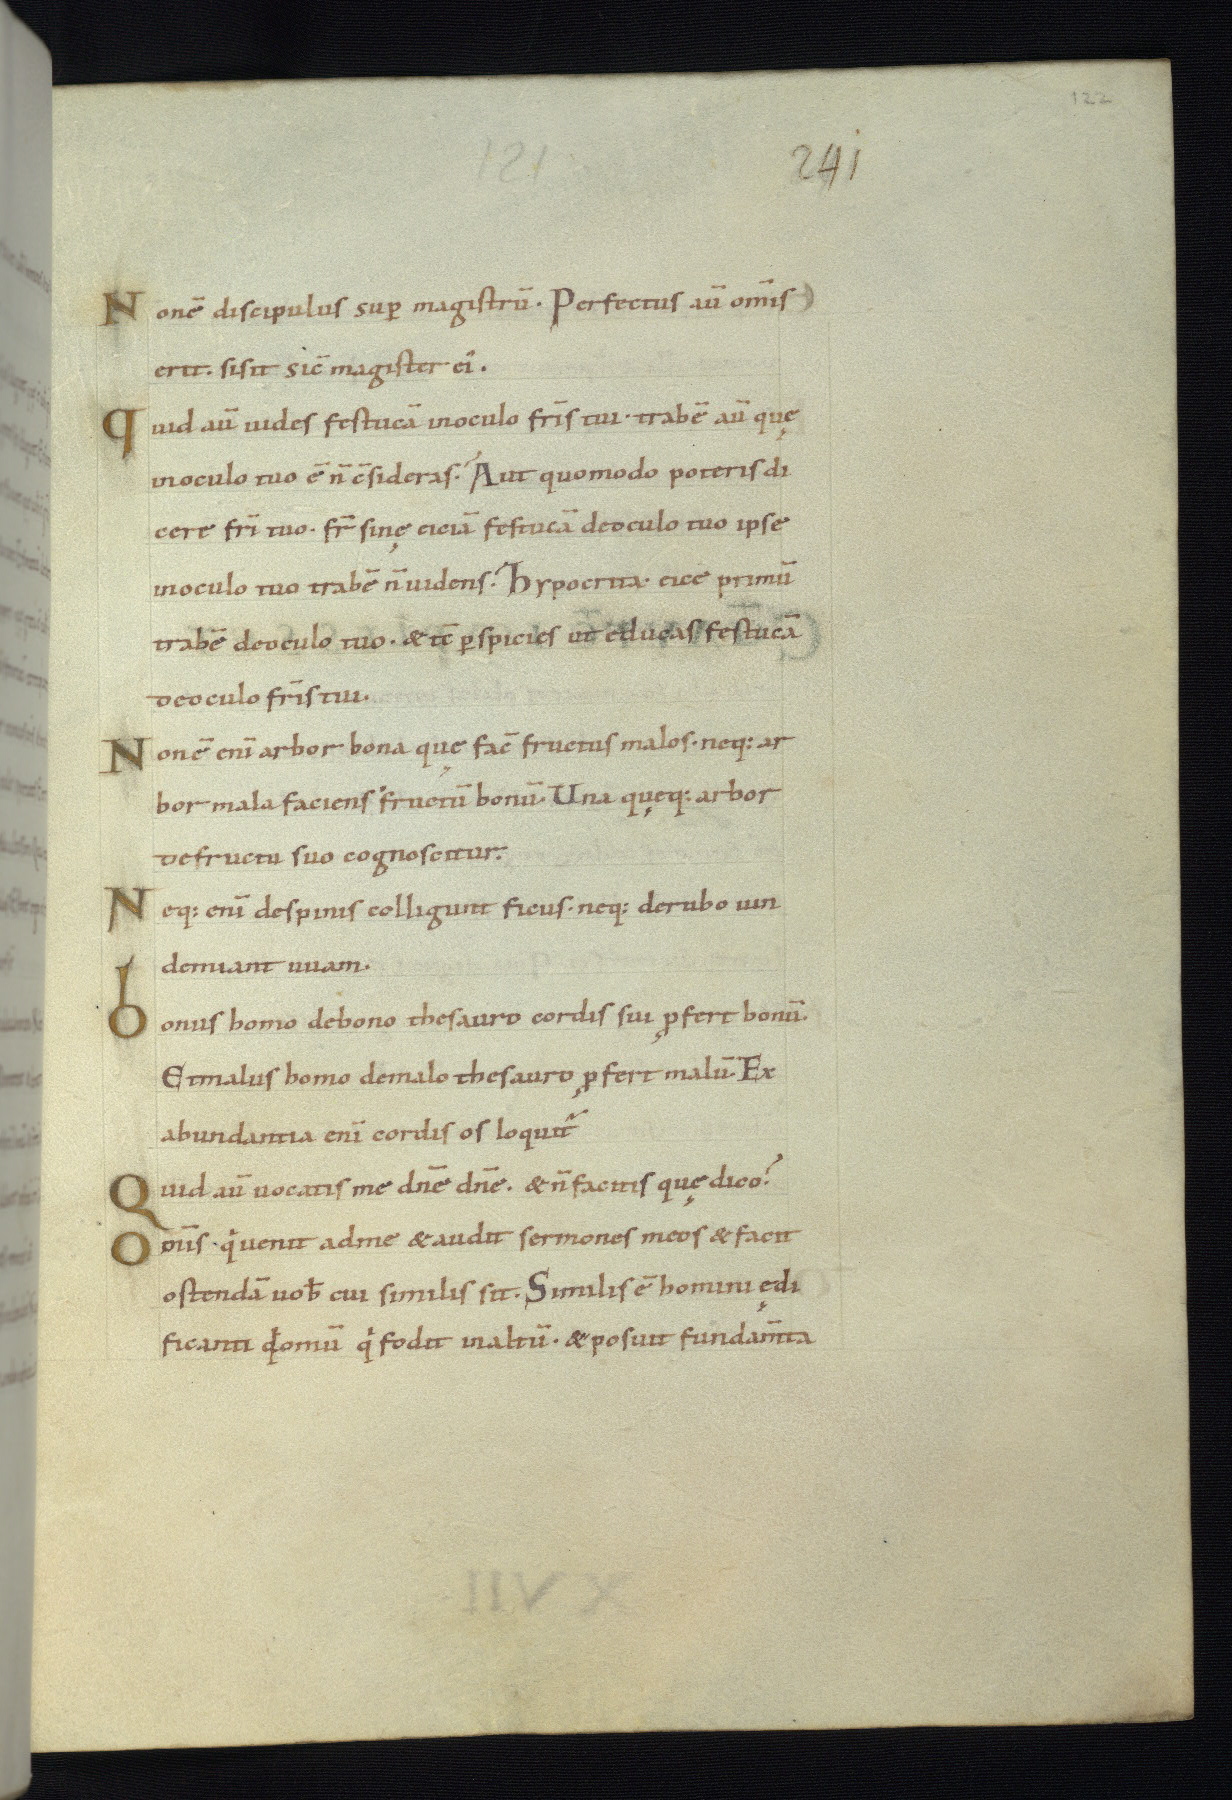 122
241
Non ē discipulus sup̄ magistrū. Perfectus aū om̄is
erit. si sit sic̄ magister ei᾽.
Quid aū uides festucā in oculo fr̄is tui. trabē aū quę
in oculo tuo ē n̄ c̄sideras? Aut quomodo poteris di
cere fr̄i tuo. fr̄ sinę eiciā festucā de oculo tuo ipse
in oculo tuo trabē n̄ uidens? Hypocrita. eice primū
trabē de oculo tuo. & tc̄ p̱spicies ut educas festucā
de oculo fr̄is tui.
Non ē eni᷄ arbor bona quę fac̄ fructus malos. neq: ar
bor mala faciens fructū bonū. Una quęq: arbor
de fructu suo cognoscitur.
Neq: eni᷄ de spinis colligunt ficus. neq: de rubo uin
demiant uuam.
bonus homo de bono thesauro cordis sui ꝓfert bonū.
Et malus homo de malo thesauro ꝓfert malū. Ex
abundantia eni᷄ cordis os loquit᷑
Quid aū uocatis me dn̄e dn̄e. & n̄ facitis quę dico?
Om̄is. qͥ uenit ad me & audit sermones meos & facit
ostendā uob̄ cui similis sit. Similis ē homini ędi
ficanti domū qͥ fodit in altū. & posuit fundam̄ta